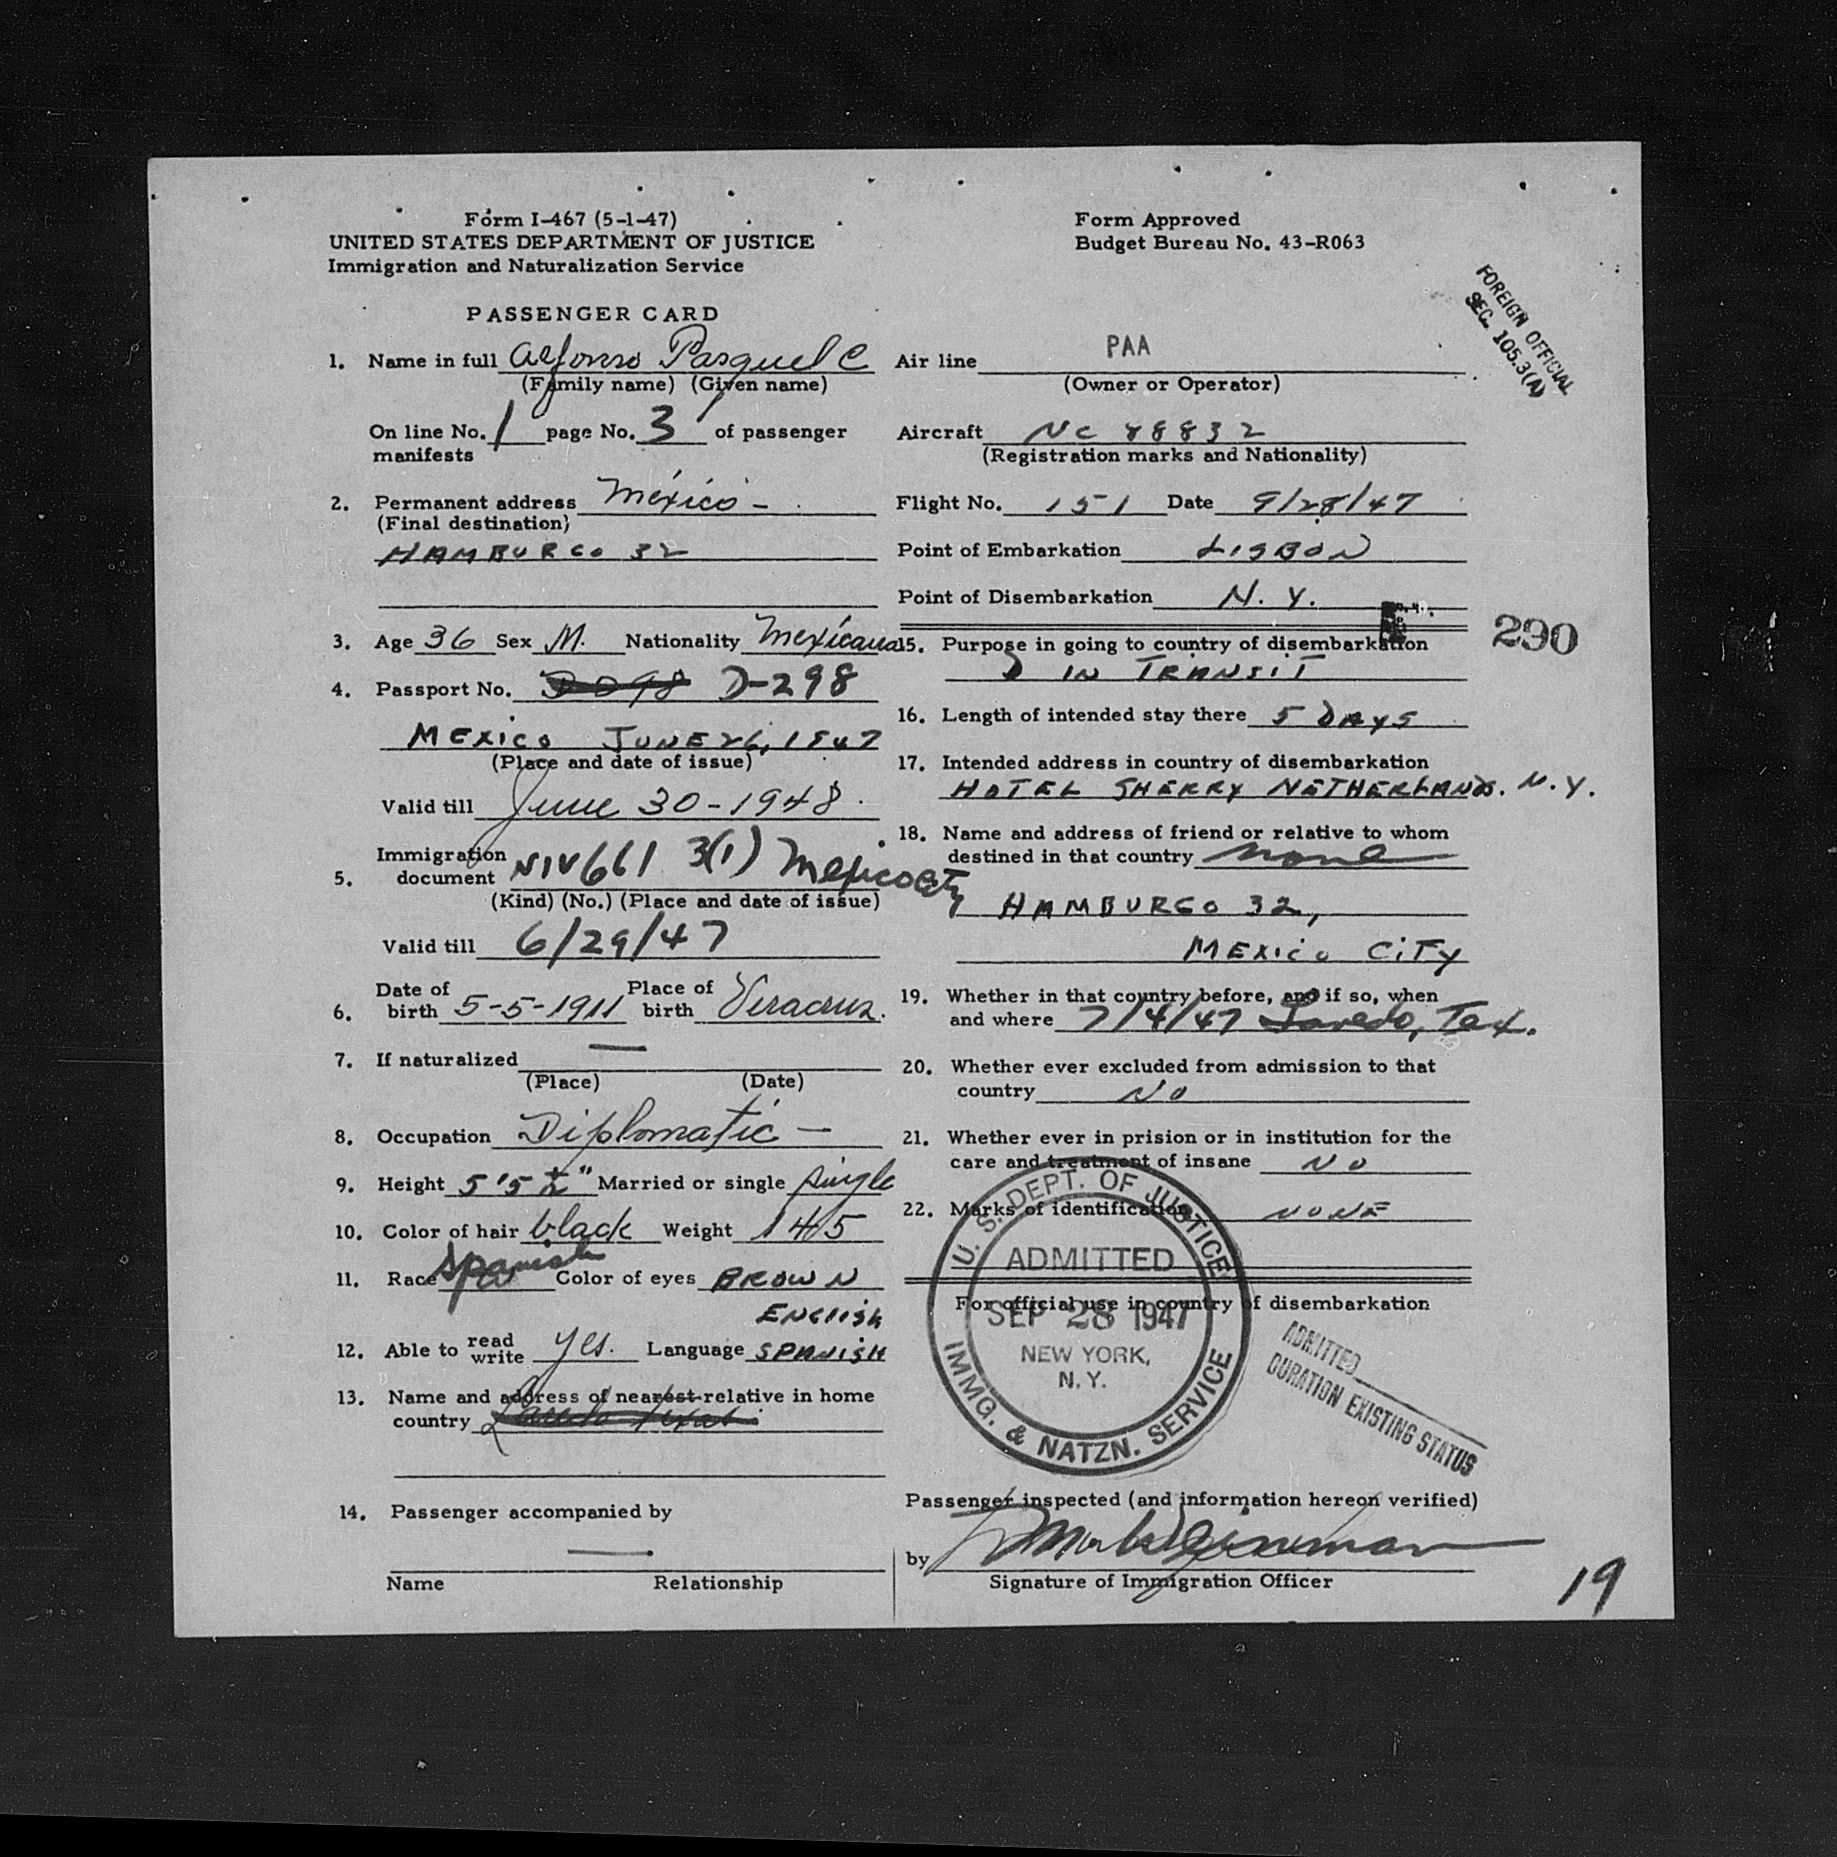 Form I-467 (5-1-47)
UNITED STATES DEPARTMENT OF JUSTICE
Immigration and Naturalization Service
Form Approved
Budget Bureau No. 43-R063
FOREIGN OFFICIAL
SEC. 105.3(A)
PASSENGER CARD
1. Name in full Alfonso Pasquel C
(Family name) (Given name)
On line No. 1 page No. 3 of passenger
manifests
2. Permanent address México -
(Final destination)
HAMBURGO 32
3. Age 36 Sex M. Nationality Mexicana
4. Passport No. D-298
MEXICO JUNE 26, 1947
(Place and date of issue)
Valid till June 30-1948.
Immigration
5. document NIV 661 3(1) Mexico City
(Kind) (No.) (Place and date of issue)
Valid till 6/29/47
6. Date of birth 5-5-1911 Place of birth Veracruz.
7. If naturalized —
(Place) (Date)
8. Occupation Diplomatic —
9. Height 5'5 ½" Married or single single
10. Color of hair black Weight 145
11. Race Spanish Color of eyes BROWN
ENGLISH
12. Able to read write yes. Language SPANISH
13. Name and address of nearest relative in home
country Laredo Texas
14. Passenger accompanied by
—
Name Relationship
Air line PAA
(Owner or Operator)
Aircraft NC 88832
(Registration marks and Nationality)
Flight No. 151 Date 9/28/47
Point of Embarkation LISBON
Point of Disembarkation N.Y.
290
15. Purpose in going to country of disembarkation
IN TRANSIT
16. Length of intended stay there 5 DAYS
17. Intended address in country of disembarkation
HOTEL SHERRY NETHERLANDS. N.Y.
18. Name and address of friend or relative to whom
destined in that country none
HAMBURGO 32,
MEXICO CITY
19. Whether in that country before, and if so, when
and where 7/4/47 Laredo, Tex.
20. Whether ever excluded from admission to that
country NO
21. Whether ever in prision or in institution for the
care and treatment of insane NO
22. Marks of identification NONE
For official use in country of disembarkation
U. S. DEPT. OF JUSTICE
ADMITTED
SEP 28 1947
NEW YORK,
N. Y.
IMMG. & NATZN. SERVICE
ADMITTED
DURATION EXISTING STATUS
Passenger inspected (and information hereon verified)
by
Signature of Immigration Officer
19